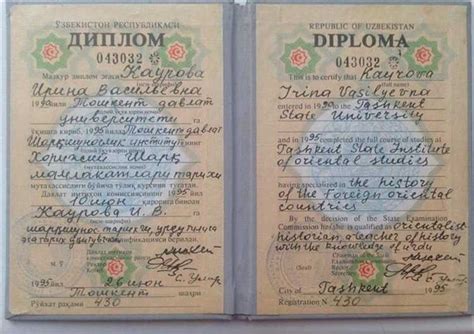 ЎЗБЕКИСТОН РЕСПУБЛИКАСИ
ДИПЛОМ
043032
Мазкур диплом эгаси Каурова
Ирина Васильевна
1990 йил Тошкент давлат
университети
га кириб, 1995 йил Тошкент давлат
Шарқшунослик институтининг
Хорижий Шарқ
мамлакатлари тарихи
мутахассислиги бўйича тўлиқ курсини тугатди.
Давлат имтиҳон
1995 йил
10 июн қарорига биноан
Каурова И. В.
шарқшунос тарихчи,
М. Ў.
1995 йил 26 июн
Тошкент
Рўйхат рақами 430
REPUBLIC OF UZBEKISTAN
DIPLOMA
043032
This is to certify that Kaurova
Irina Vasilyevna
entered in 1990 the Tashkent
State University
and in 1995 completed the full course of studies at
Tashkent State Institute
of oriental studies
having specialised in the history
of the Foreign oriental
countries
By the decision of the State Examination
Commission he/she is qualified as orientalist
historian, a teacher of history
with the knowledge of urdu
Chairman of the State
Examination
Rector
Secretary
City of Tashkent 1995
Registration N 430